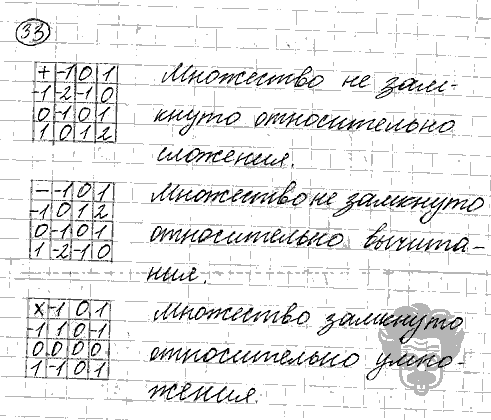 33
+ -1 0 1
-1 -2 -1 0
0 -1 0 1
1 0 1 2
Множество не зам-
кнуто относительно
сложения.
- -1 0 1
-1 0 1 2
0 -1 0 1
1 -2 -1 0
Множество не замкнуто
относительно вычита-
ния.
x -1 0 1
-1 1 0 -1
0 0 0 0
1 -1 0 1
Множество замкнуто
относительно умно-
жения.